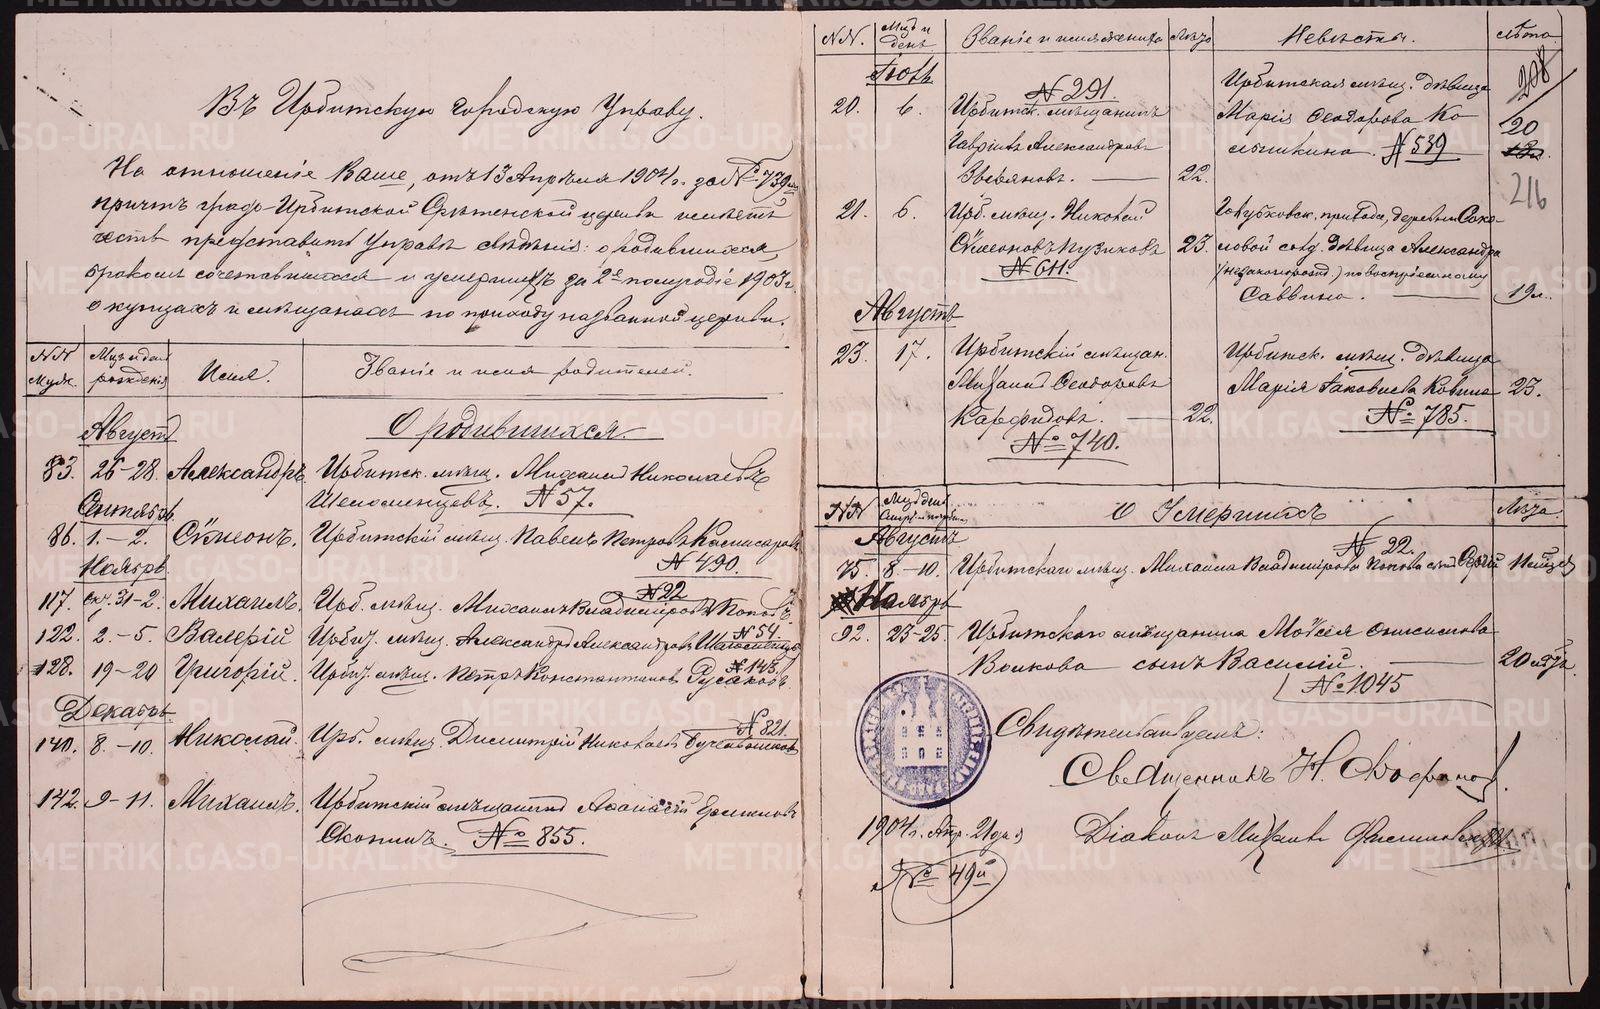 Въ Ирбитскую Городскую Управу.
На отношеніе Ваше, отъ 13 Апрѣля 1904 г. за № 739
причтъ градо-Ирбитской Срѣтенской церкви имѣетъ
честь представить Управѣ свѣдѣнія: о родившихся,
бракомъ сочетавшихся и умершихъ за 2е полугодіе 1903 г.
о купцахъ и мѣщанахъ по приходу названной церкви.
№№ Муж. Мѣс. и день рожденія Имя. Званіе и имя родителей.
Августъ О родившихся.
83. 26-28. Александръ Ирбитск. мѣщ. Михаилъ Николаевъ
Шеломенцевъ. № 57.
Сентябрь
86. 1.-2. Сѵмеонъ. Ирбитскій мѣщ. Павелъ Петровъ
№ 490
Ноябрь
№ 22
117. Окт. 31-2. Михаилъ. Ирб. мѣщ. Михаилъ Владиміровъ Поповъ
122. 2.-5. Валерій Ирбит. мѣщ. Александръ Александровъ № 54.
128. 19-20 Григорій. Ирбит. мѣщ. Петръ Константиновъ Русаковъ № 148.
Декабрь
140. 8.-10. Николай. Ирб. мѣщ. Димитрій Николаевъ № 821.
142. 9-11. Михаилъ. Ирбитскій мѣщанинъ Аѳанасій
Скопинъ. № 855.
№№. Мѣсц и день Званіе и имя жениха Лѣта Невѣсты. Лѣта
208
Іюль
20. 6. № 291. Ирбитск. мѣщанинъ
Гавріилъ Александровъ
Звѣряковъ. — 22.
Ирбитская мѣщ. дѣвица
Марія Ѳеодорова Ко
№ 539 20
216
21. 6. Ирб. мѣщ. Николай
Сѵмеоновъ Пузиковъ 23.
№ 611.
Голубковск. прихода, деревни Соко
ловой сол. дѣвица Александра
(незаконорожд.) по воспріемнику
Саввина. — 19 л.
Августъ
23. 17. Ирбитскій мѣщан.
Михаилъ Ѳеодоровъ
Карфидовъ. — 22.
№ 740.
Ирбитск. мѣщ. дѣвица
Марія Іаковлева 23.
№ 785.
№№ О Умершихъ Лѣта.
Августъ
№ 22.
75. 8.-10. Ирбитскаго мѣщ. Михаила Владимірова Попова сынъ Сергій
Ноябрь
92. 23-25. Ирбитского мѣщанина Моѵсея Онисимова
Волкова сынъ Василій. — 20
№ 1045
Свидѣтельствуемъ:
Священникъ Н.
1904 г. Апр. 21 дня
Діаконъ Михаилъ
№ 49
METRIKI.GASO-URAL.RU